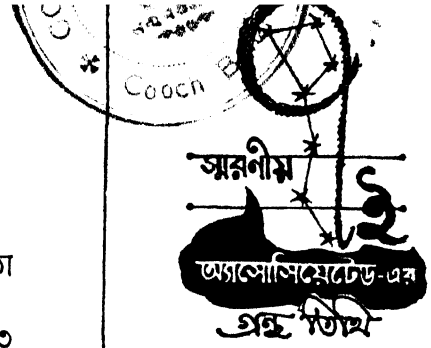 Cooch B
স্মরণীয়
৭ই
অ্যাসোসিয়েটেড-এর
গ্রন্থ তিথি